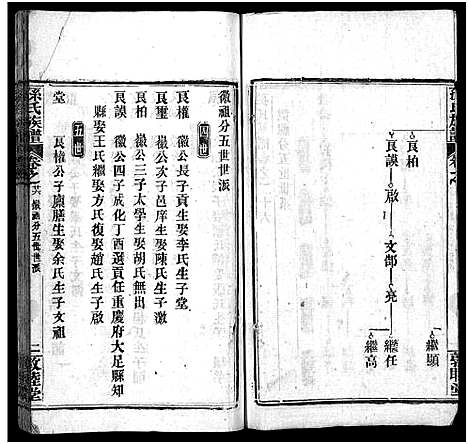 良柏
良謨——啟——文郁——亮
繼顯
繼任
繼高
孫氏族譜
卷之
敦睦堂
徽祖分五世世派
四世
良權 徽公長子貢生娶李氏生子堂
良璽 徽公次子邑庠生娶陳氏生子激
良柏 徽公三子太學生娶胡氏無出
良謨 徽公四子成化丁酉選貢任重慶府大足縣知
縣娶王氏繼娶方氏復娶趙氏生子啟
五世
堂 良權公子廩膳生娶余氏生子文祖
孫氏族譜
卷之六 徽祖分五世世派
二 敦睦堂